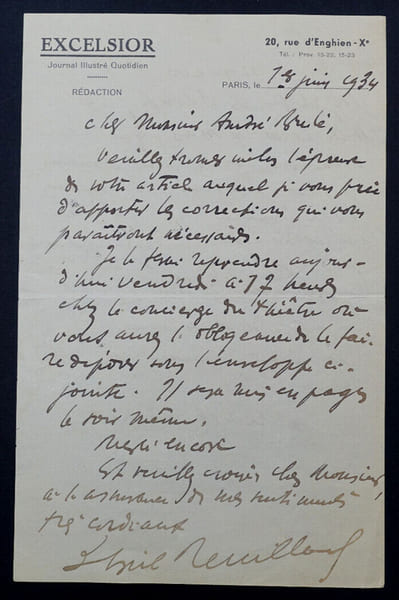 EXCELSIOR
Journal Illustré Quotidien
RÉDACTION
20, rue d'Enghien - Xe
Tél. : Prov. 15-22, 15-23
PARIS, le 1er juin 1934
Cher Monsieur André Brulé,
Veuillez trouver inclus l'épreuve
de votre article auquel je vous prie
d'apporter les corrections qui vous
paraîtront nécessaires.
Je le ferai reprendre aujour-
d'hui vendredi à 17 heures
chez le concierge du théâtre où
vous aurez l'obligeance de le fai-
re déposer sous l'enveloppe ci-
jointe. Il sera mis en pages
le soir même.
Merci encore
Et veuillez croire, cher Monsieur,
à l'assurance de mes sentiments
très cordiaux